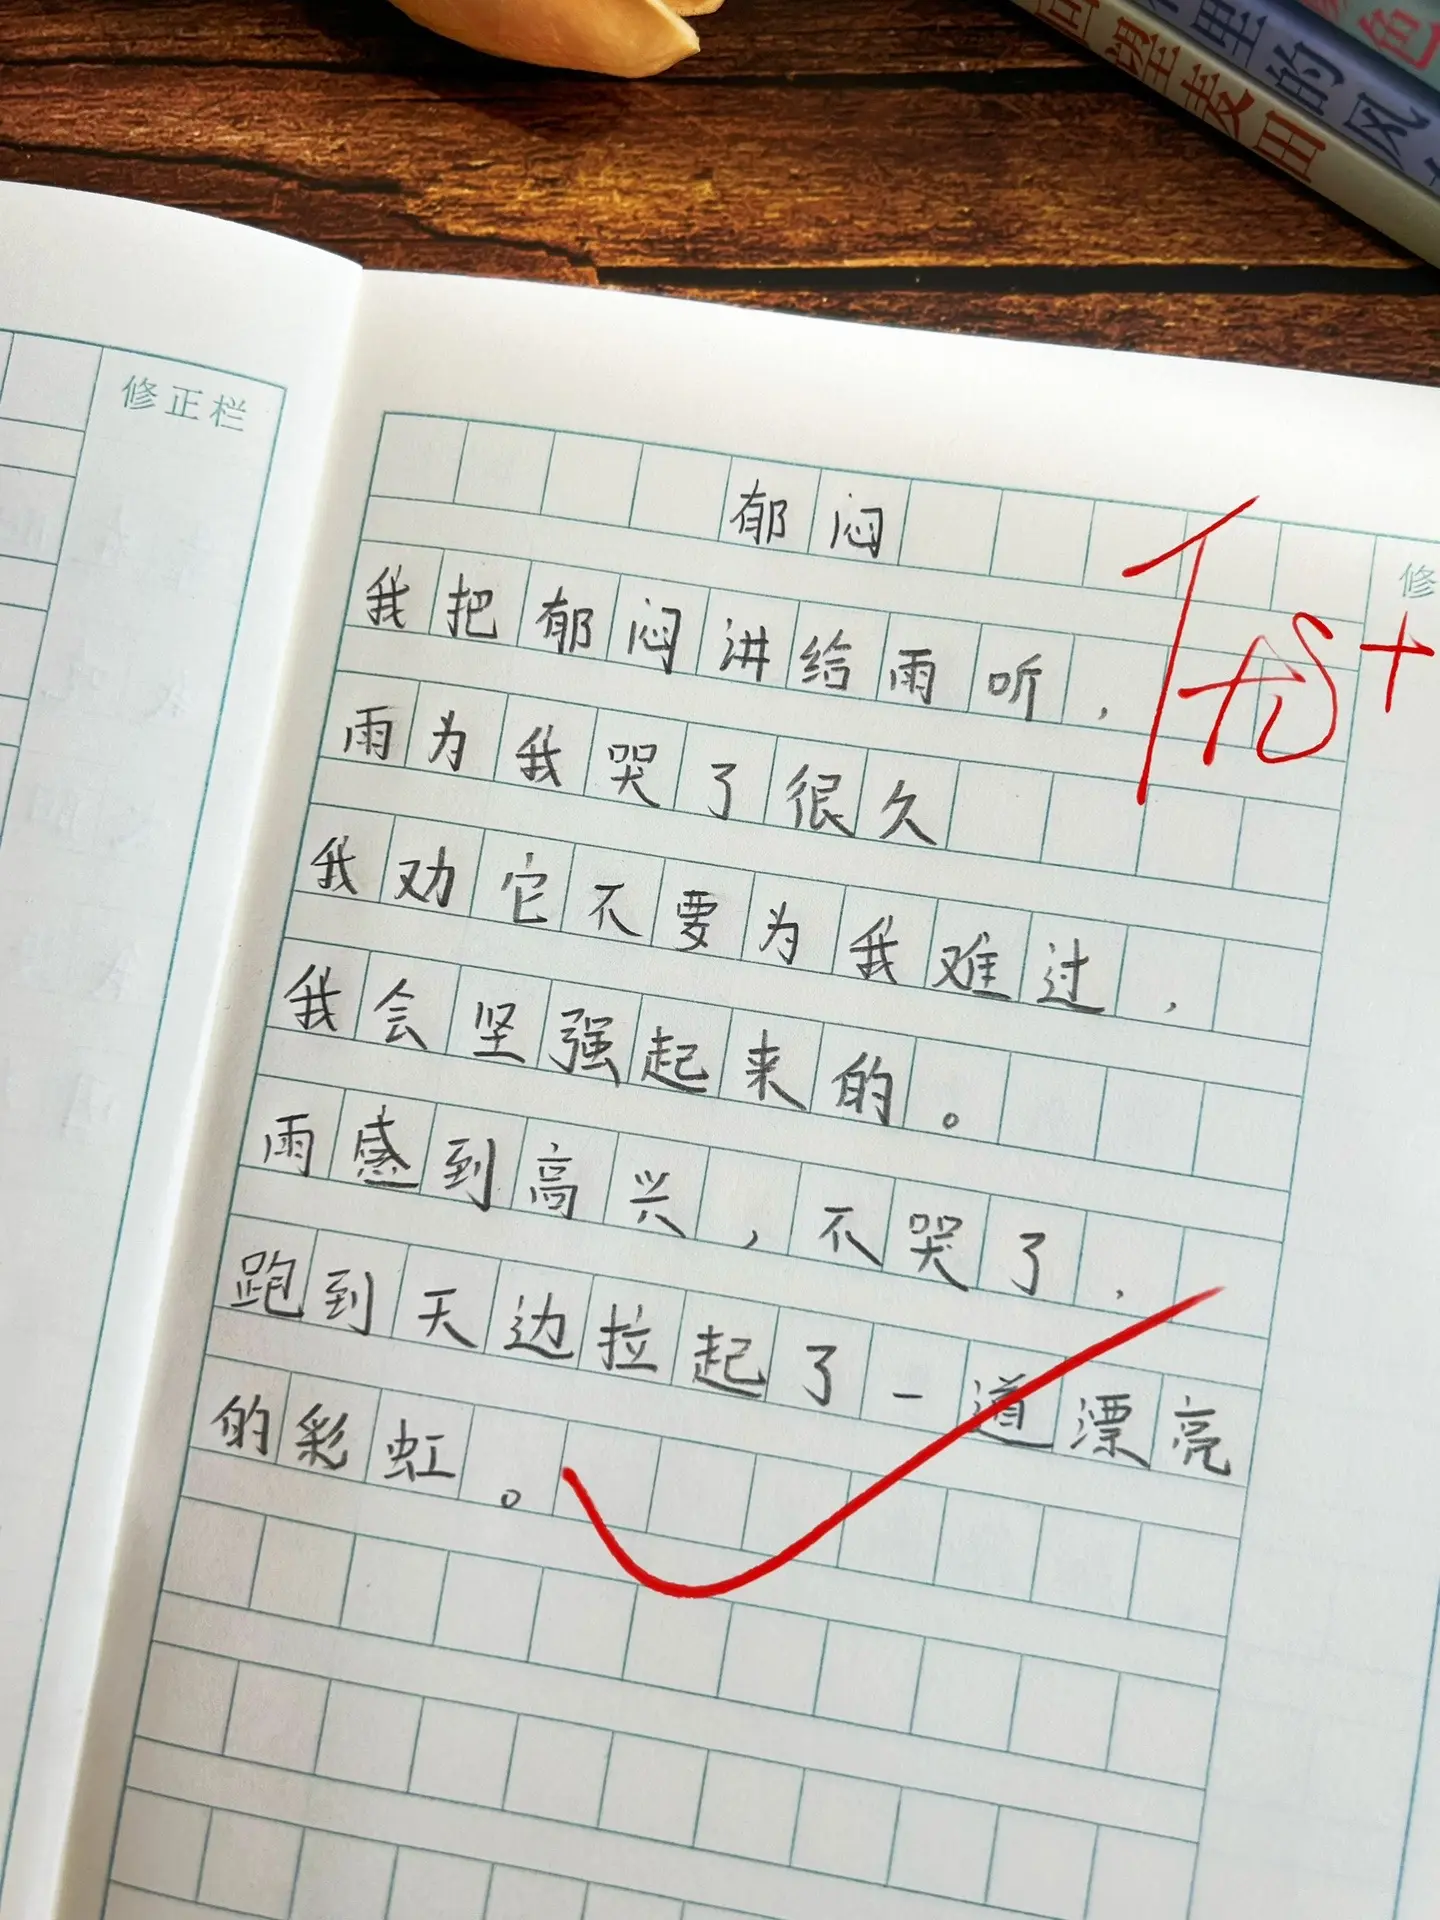 里的风
修正栏
郁闷
我把郁闷讲给雨听，
雨为我哭了很久
我劝它不要为我难过，
我会坚强起来的。
雨感到高兴，不哭了，
跑到天边拉起了一道漂亮
的彩虹。
修